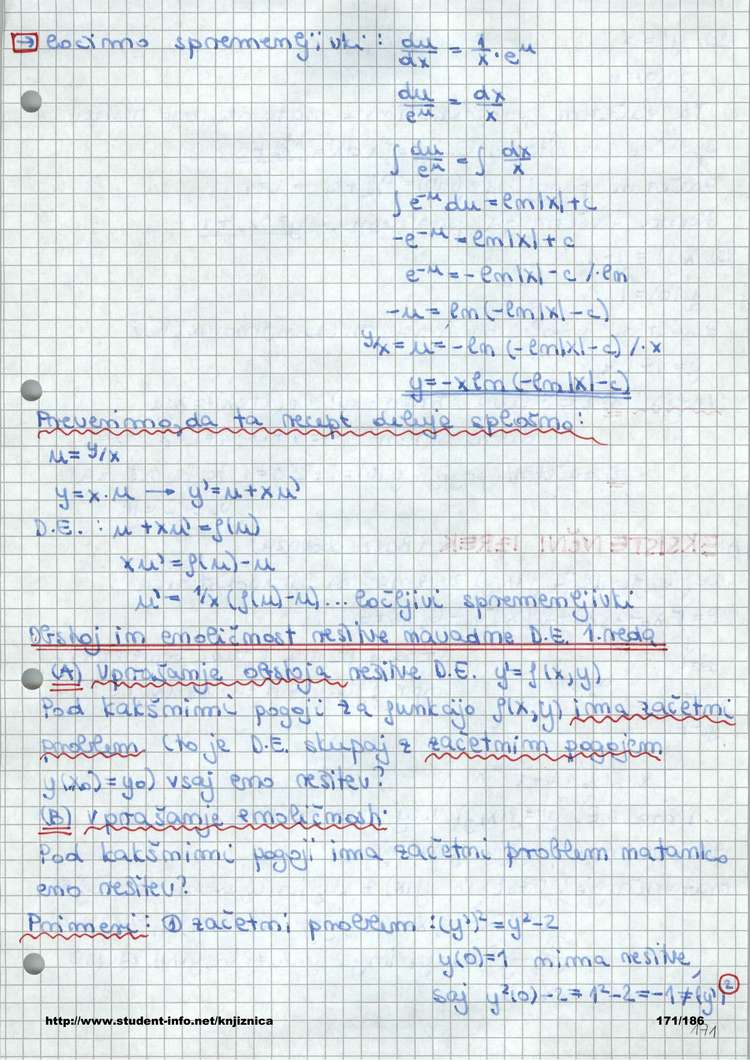 → ločimo spremenljivki: du/dx = 1/x · e^u
du/e^u = dx/x
∫ du/e^u = ∫ dx/x
∫ e^-u du = ln|x| + c
-e^-u = ln|x| + c
e^-u = -ln|x| - c /·ln
-u = ln(-ln|x| - c)
y/x = u = -ln(-ln|x| - c) /·x
y = -x ln(-ln|x| - c)
Preverimo, da ta recept deluje splošno:
u = y/x
y = x·u → y' = u + xu'
D.E.: u + xu' = f(u)
xu' = f(u) - u
u' = 1/x (f(u) - u) ... ločljivi spremenljivki
Obstoj in enoličnost rešitve navadne D.E. 1. reda
(A) Vprašanje obstoja rešitve D.E. y' = f(x,y)
Pod kakšnimi pogoji za funkcijo f(x,y) ima začetni
problem (to je D.E. skupaj z začetnim pogojem
y(x0) = y0) vsaj eno rešitev?
(B) Vprašanje enoličnosti:
Pod kakšnimi pogoji ima začetni problem natanko
eno rešitev?
Primeri: ① začetni problem: (y')² = y² - 2
y(0) = 1 nima rešitve,
saj y²(0) - 2 = 1² - 2 = -1 ≠ (y')²
http://www.student-info.net/knjiznica 171/186
171